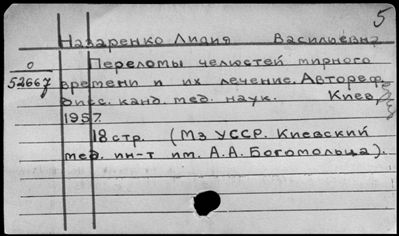 5
Назаренко Лидия Василиевна
О Переломы челюстей мирного
52667 времени и их лечение. Автореф.
дисс. канд. мед. наук. Киев,
1957.
18 стр. (Мз УССР. Киевский
мед. ин-т им. А.А. Богомольца).